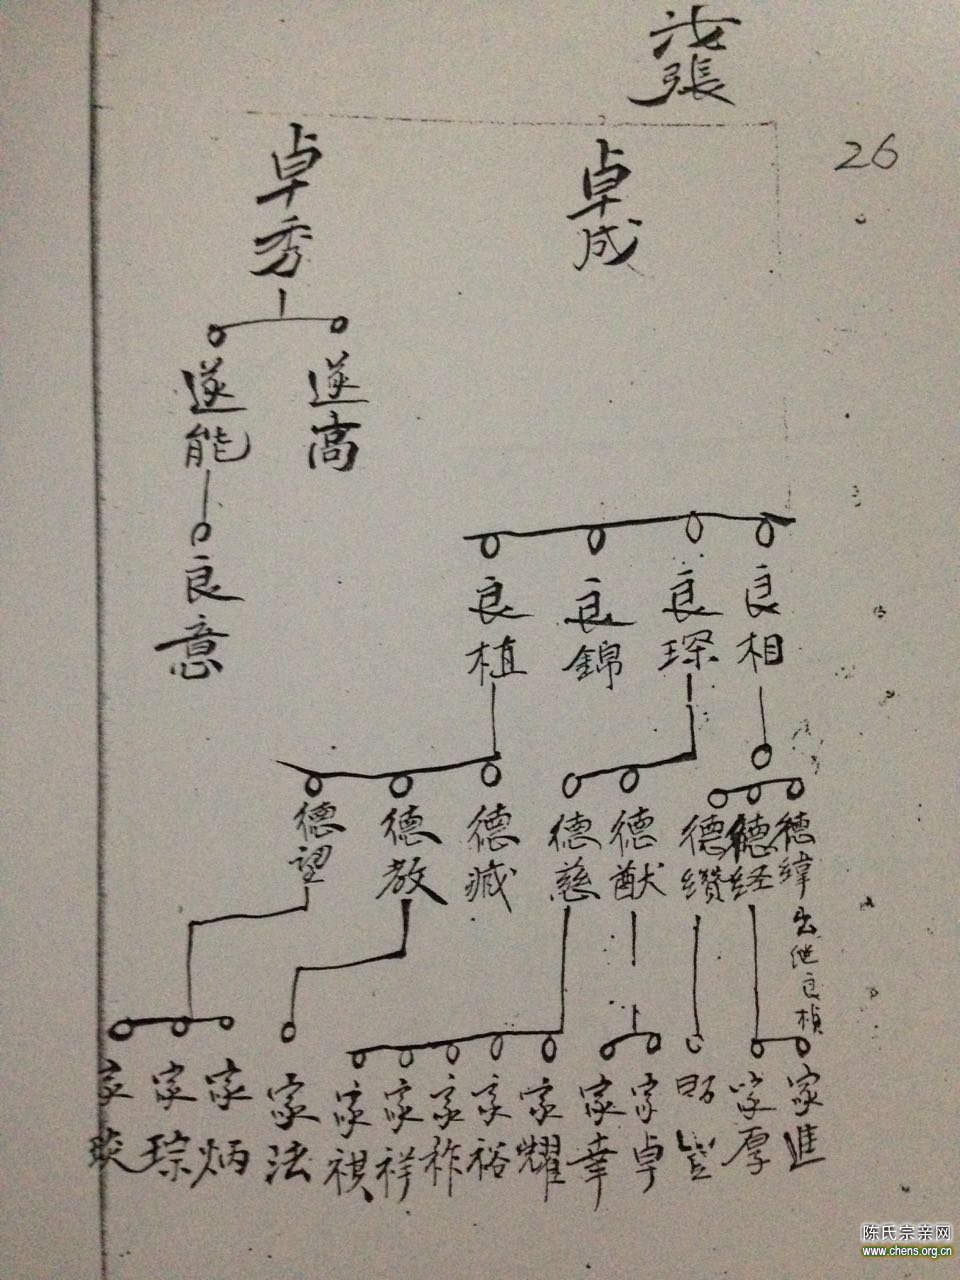 汝張
26
卓成
卓秀
遂高
遂能
良意
良相
良琛
良錦
良植
德緯
出继良楨
德经
德缵
德猷
德慈
德臧
德教
德望
家進
家厚
家卓
家幸
家耀
家裕
家祚
家祥
家祺
家法
家炳
家琮
家琰
陈氏宗亲网
www.chens.org.cn